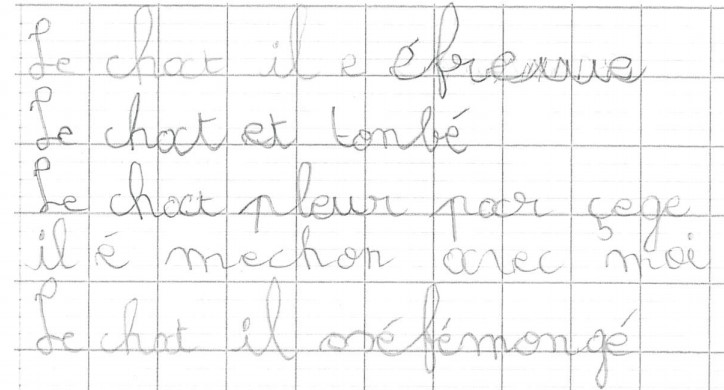 Le chat il e éfrexaue
Le chat et tonbé
Le chat pleur par çege
il é mechan avec moi
Le chat il osé fémongé